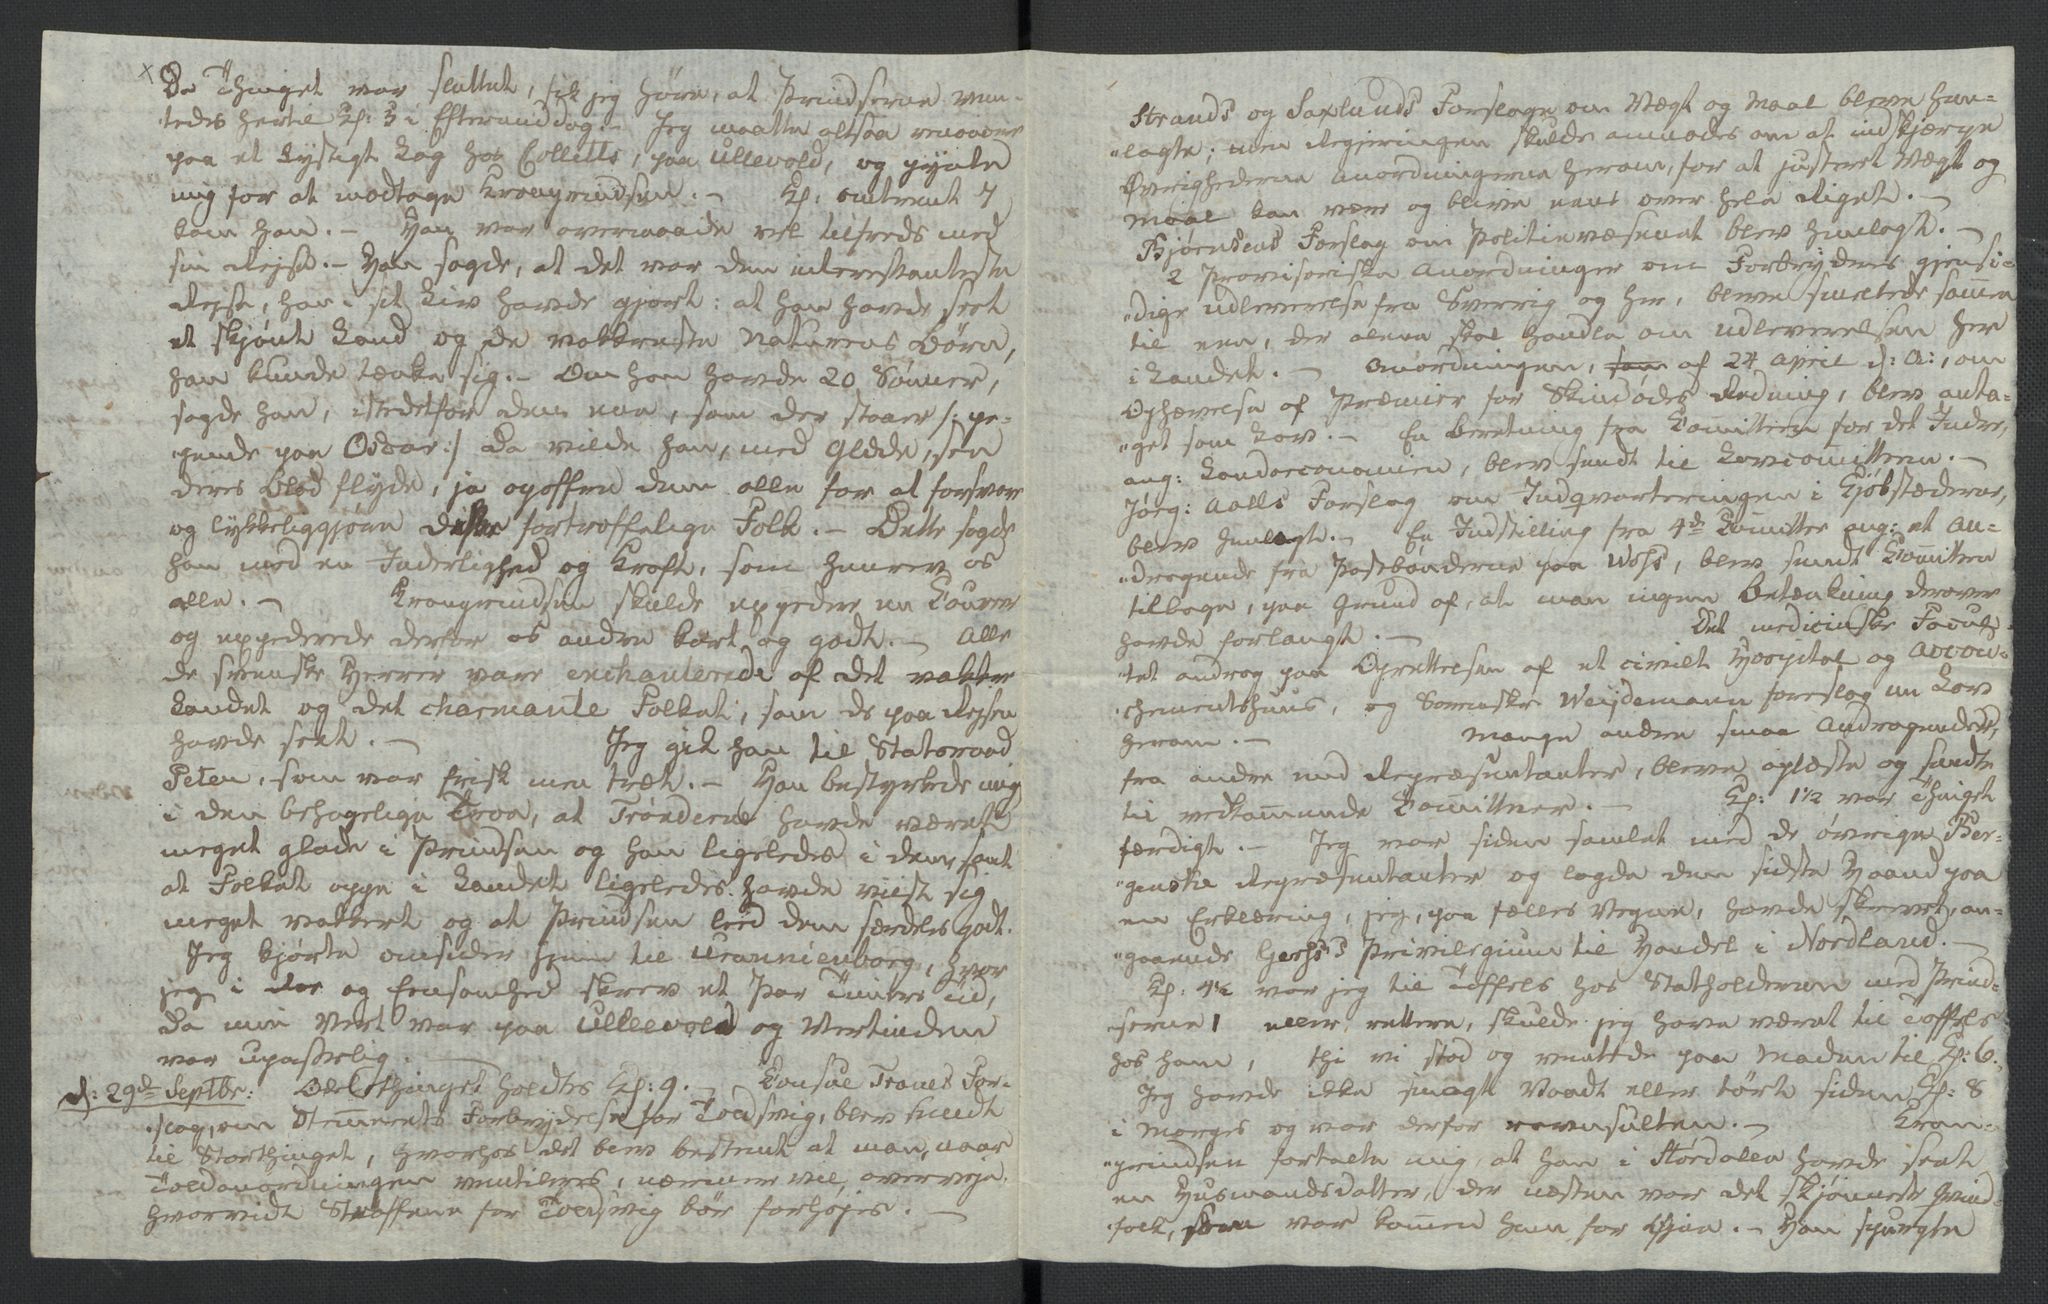 Da Thinget var sluttet, fik jeg høre, at Prindserne ven-
tedes hertil Kl: 3 i Eftermiddag. - Jeg maatte altsaa renoncere
paa et Lystigt Lag hos Colletts, paa Ullevold, og pynte
mig for at modtage Kronprindsen. - Kl: omtrent 7
kom han. - Han var overmaade vel tilfreds med
sin Rejse. - Han sagde, at det var den interessanteste
Rejse, han i sit Liv havde gjort: at han havde seet
et skjønt Land og de vakkreste Naturens Børn,
han kunde tænke sig. - Om han havde 20 Sønner,
sagde han, istedetfor den ene, som der staaer /: pe-
gende paa Oscar :/ Da vilde han, med Glæde, see
deres Blod flyde, ja opoffre dem alle for at forsvare
og lykkeliggjøre dette fortræffelige Folk. - Dette sagde
han med en Inderlighed og Kraft, som henrev os
alle. - Kronprindsen skulde expedere en Courer
og expederede derfor os andre kort og godt. - Alle
de svenske Herrer vare enchanterede af det vakkre
Landet og det charmante Folket, som de paa Rejsen
havde seet. - Jeg gik hen til Statsraad
Peter, som var frisk men træt. - Han bestyrkede mig
i den behagelige Troe, at Trønderne havde været
meget glade i Prindsen og han ligeledes i dem, samt
at Folket oppe i Landet ligeledes havde viist sig
meget vakkert og at Prindsen leed dem særdeles godt.
Jeg kjørte omsider hjem til Uranienborg, hvor
jeg i Roe og Eensomhed skrev et Par Timers Tid,
da min Vert var paa Ullevold og Vertinden
var upasselig.
d: 29de Septbr: Odelsthinget holdtes Kl: 9. - Consul Tranes For-
slag, om Stemmerets Forbrydelse for Toldsvig, blev sendt
til Storthinget, hvorhos det blev bestemt at man, naar
Toldanordningen ventileres, nærmere vil overveje,
hvorvidt Straffene for Toldsvig bør forhøjes. -
Strands og Saxlunds Forslage om Vægt og Maal bleve hen-
"lagte; men Regjeringen skulde anmodes om at indskjærpe
Øvrighederne Anordningerne herom, for at justeret Vægt og
Maal kan være og blive eens over hele Riget. -
Bjørnsens Forslag om Politievæsenet blev henlagt. -
2 Provisoriske Anordninger om Forbryderes gjensi-
"dige Udleverelse fra Sverrig og her, bleve smeltede sammen
til een, der alene skal handle om Udleverelsen her
i Landet. - Anordningen, som af 24 April d: A:, om
Ophævelse af Præmier for Skindøde Redning, blev anta-
"get som Lov. - En Beretning fra Comitteen for det Indre,
ang: Landoeconomien, blev sendt til Lovcomitteen. -
Jørg: Aalls Forslag om Indqvarteringen i Kjøbstæderne,
blev henlagt. - En Indstilling fra 4de Comittee ang: et An-
"dragende fra Postbønderne paa Wos, blev sendt Comitteen
tilbage, paa Grund af, at man ingen Betænkning derover
havde forlangt. - Det medicinske Facul-
"tet androg paa Oprettelsen af et civilt Hospital og Accou-
"chementshuus, og Sorenskr Weydemann foreslog en Lov
herom. - Mange andre smaa Andragender,
fra andre end Repræsentanter, bleve oplæste og sendte
til vedkommende Comitteer. - Kl: 1½ var Thinget
færdigt. - Jeg var siden samlet med de øvrige Ber-
"genske Repræsentanter og lagde den sidste Haand paa
en Erklæring, jeg, paa fælles Vegne, havde skrevet, an-
"gaaende Privilegium til Handel i Nordland. -
Kl: 4½ var jeg til Taffels hos Statholderen med Prind-
serne, eller rettere, skulde jeg have været til Taffels
hos ham, thi vi stod og ventede paa Maden til Kl: 6.
Jeg havde ikke smagt Vaadt eller tørt siden Kl: 8
i Morges og var derfor ravnsulten. - Kron-
"prindsen fortalte mig, at han i Størdalen havde seet
en Huusmandsdatter, der næsten var det skjønneste Qvind-
folk, som var kommen ham for Øjne. - Han spurgte